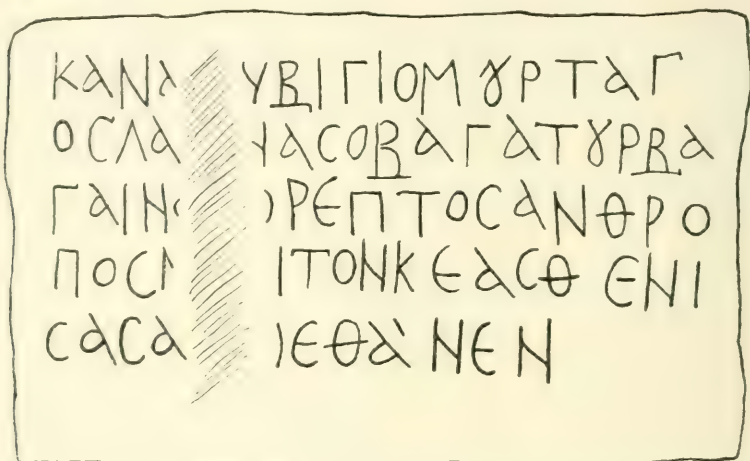 ΚΑΝΑ ΥΒΙΓΙΟΜȢΡΤΑΓ
ΟCΛΑ ΑCΟΒΑΓΑΤȢΡΒΑ
ΓΑΙΝ ΡΕΠΤΟCΑΝΘΡΟ
ΠΟC ΙΤΟΝΚΕΑCΘΕΝΙ
CΑCΑ ΕΘΑΝΕΝ